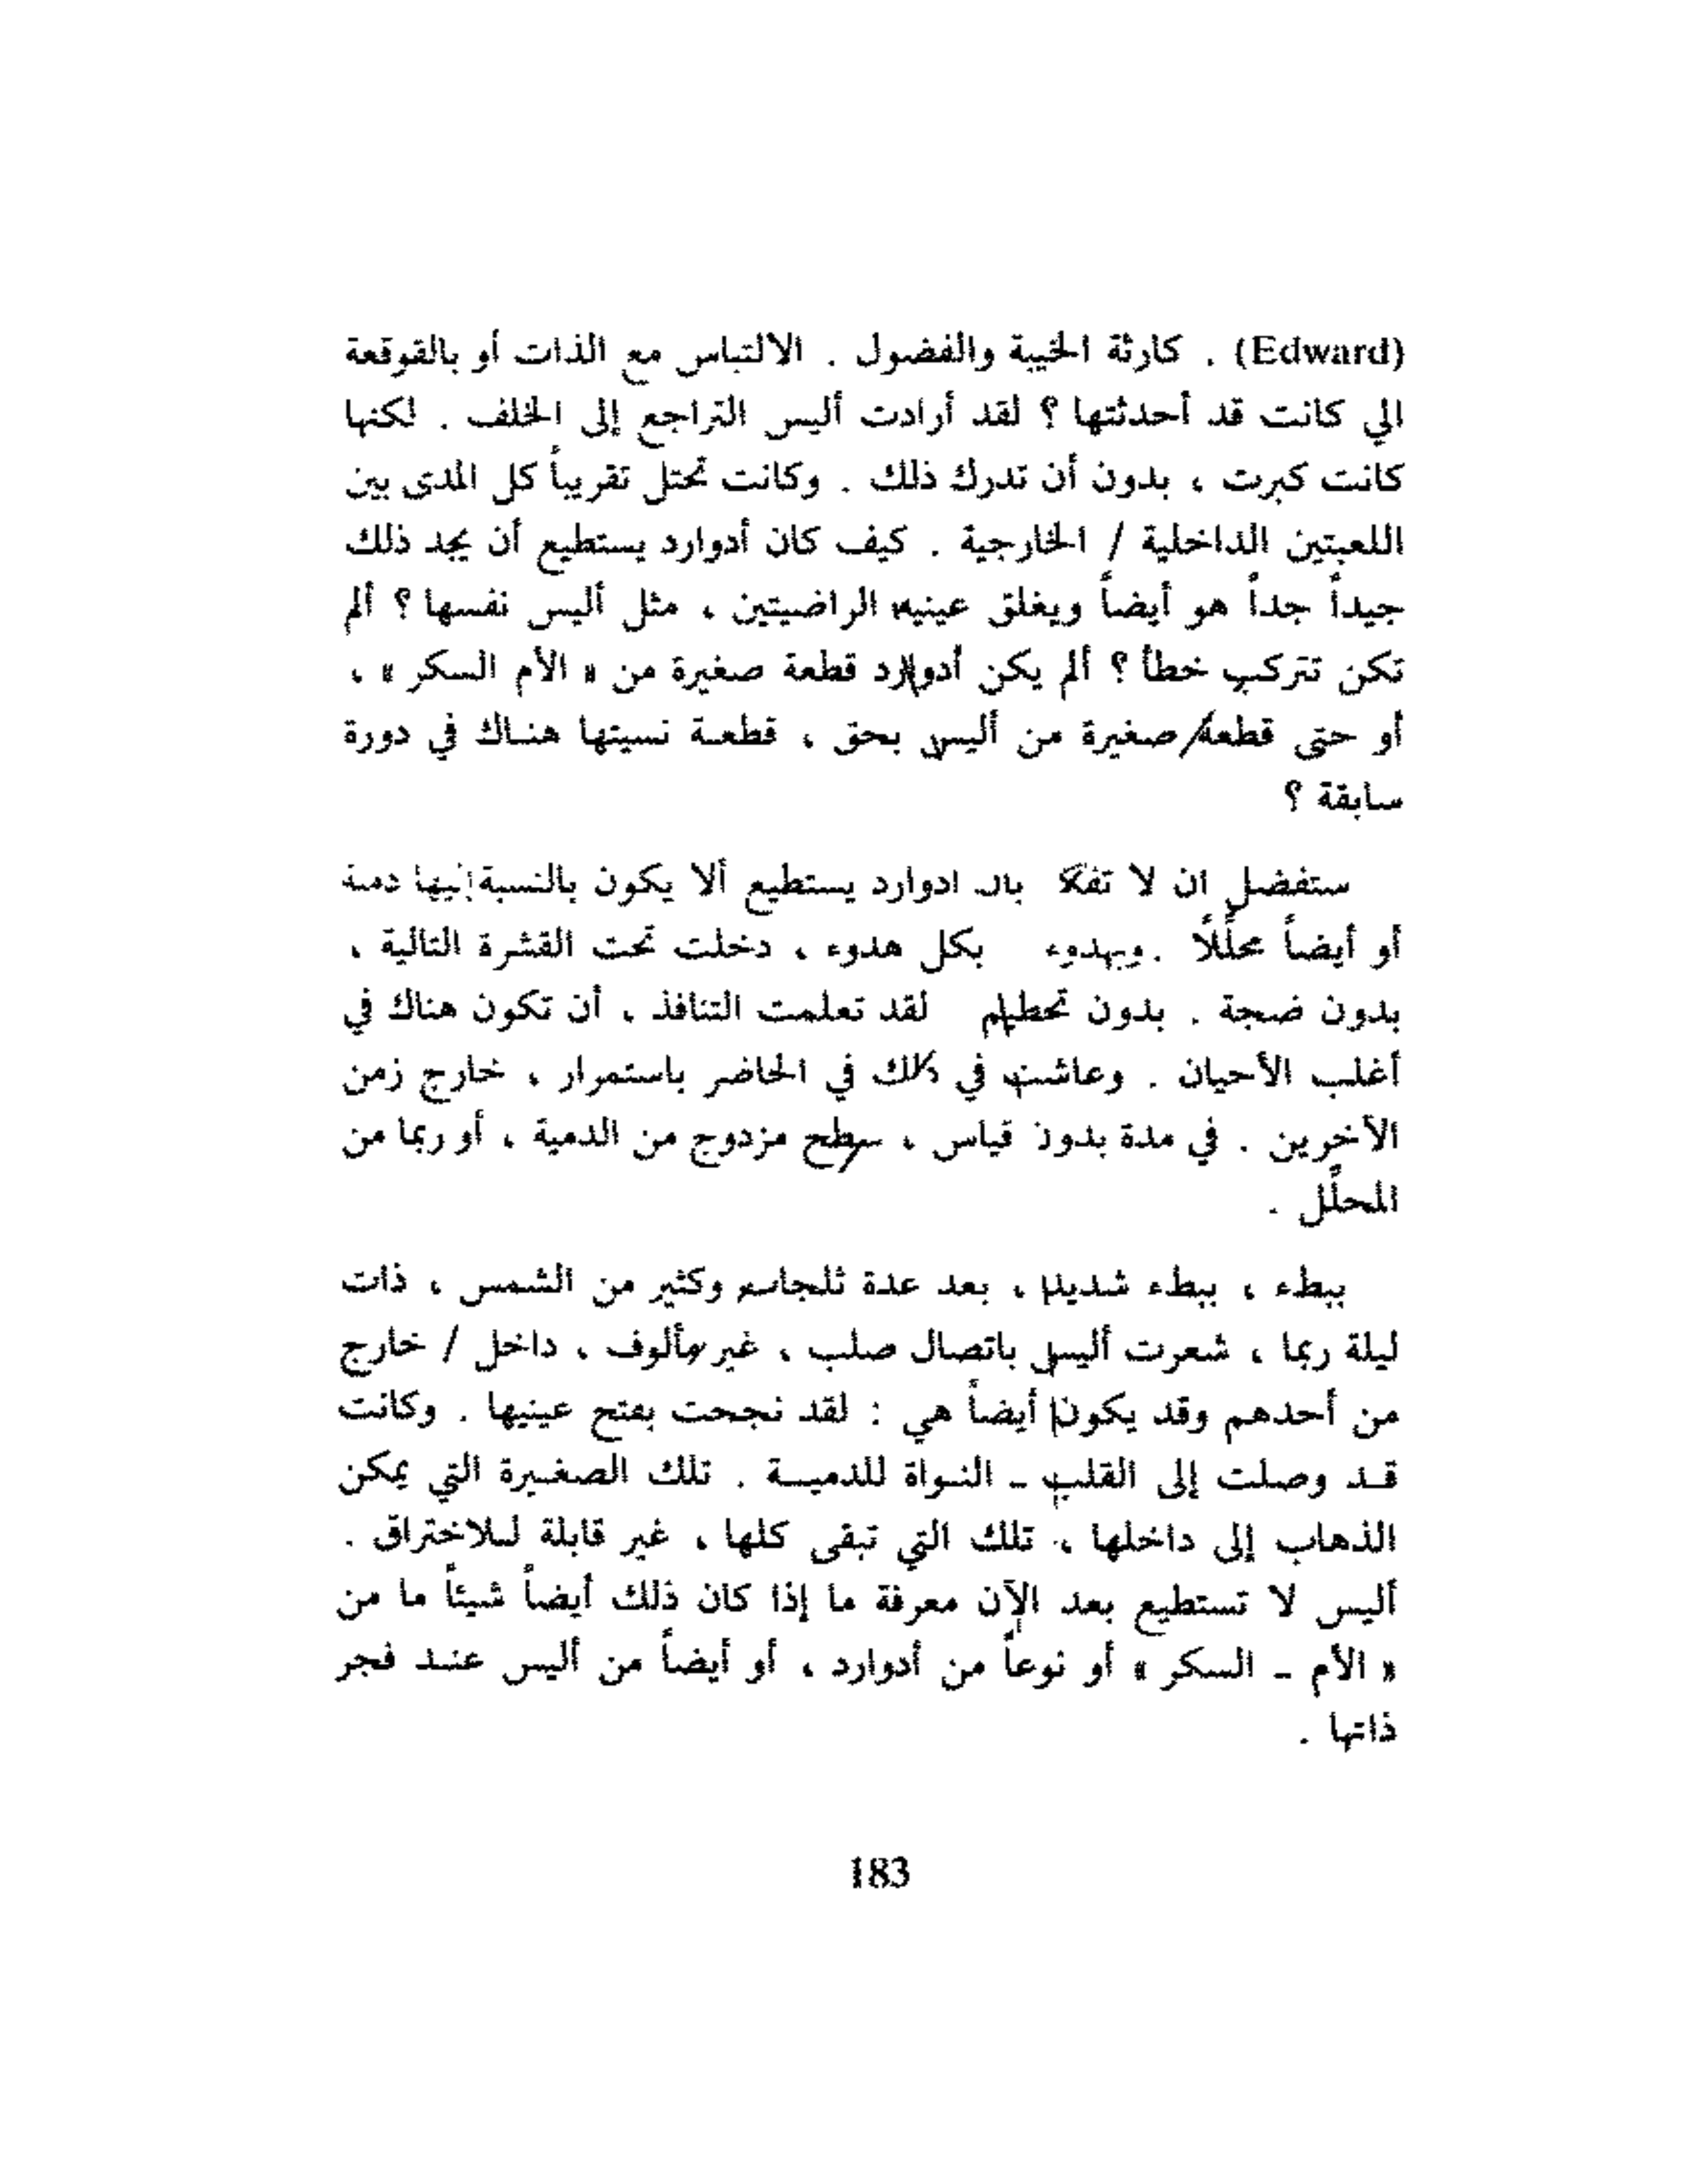 (Edward) . كارثة الخيبة والفضول . الالتباس مع الذات أو بالقوقعة
الي كانت قد أحدثتها ؟ لقد أرادت أليس التراجع إلى الخلف . لكنها
كانت كبرت ، بدون أن تدرك ذلك . وكانت تحتل تقريباً كل المدى بين
اللعبتين الداخلية / الخارجية . كيف كان أدوارد يستطيع أن يجد ذلك
جيداً جداً هو أيضاً ويغلق عينيه الراضيتين ، مثل أليس نفسها ؟ ألم
تكن تتركب خطأ ؟ ألم يكن أدوارد قطعة صغيرة من « الأم السكر » ،
أو حتى قطعة صغيرة من أليس بحق ، قطعة نسيتها هناك في دورة
سابقة ؟
ستفضل ان لا تفكر ادوارد يستطيع ألا يكون بالنسبة إليها دمية
أو أيضاً محلِّلاً . وبهدوء بكل هدوء ، دخلت تحت القشرة التالية ،
بدون ضجة . بدون تحطيم لقد تعلمت التنافذ ، أن تكون هناك في
أغلب الأحيان . وعاشت في ذلك في الحاضر باستمرار ، خارج زمن
الآخرين . في مدة بدون قياس ، سطح مزدوج من الدمية ، أو ربما من
المحلِّل .
ببطء ، ببطء شديد ، بعد عدة ثلجات وكثير من الشمس ، ذات
ليلة ربما ، شعرت أليس باتصال صلب ، غير مألوف ، داخل / خارج
من أحدهم وقد يكون أيضاً هي : لقد نجحت بفتح عينيها . وكانت
قد وصلت إلى القلب - النواة للدمية . تلك الصغيرة التي يمكن
الذهاب إلى داخلها ، تلك التي تبقى كلها ، غير قابلة للاختراق .
أليس لا تستطيع بعد الآن معرفة ما إذا كان ذلك أيضاً شيئاً ما من
« الأم - السكر » أو نوعاً من أدوارد ، أو أيضاً من أليس عند فجر
ذاتها .
183